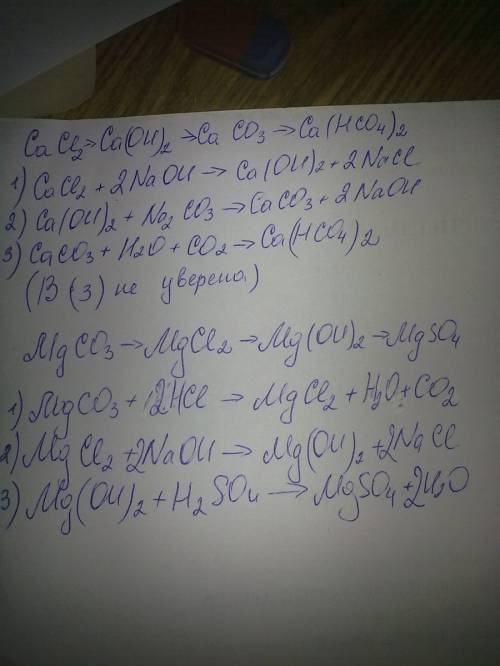 CaCl2→Ca(OH)2→CaCO3→Ca(HCO4)2
1) CaCl2+2NaOH→Ca(OH)2+2NaCl
2) Ca(OH)2+Na2CO3→CaCO3+2NaOH
3) CaCO3+H2O+CO2→Ca(HCO4)2
(В (3) не уверена)
MgCO3→MgCl2→Mg(OH)2→MgSO4
1) MgCO3+2HCl→MgCl2+H2O+CO2
2) MgCl2+2NaOH→Mg(OH)2+2NaCl
3) Mg(OH)2+H2SO4→MgSO4+2H2O